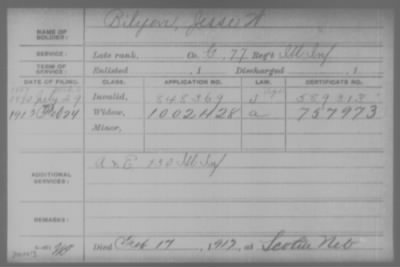 NAME OF SOLDIER: Bilyeu, Jesse W
SERVICE: Late rank, Co. G, 77 Reg't Ill Inf
TERM OF SERVICE: Enlisted , 1 Discharged , 1
DATE OF FILING. CLASS. APPLICATION NO. LAW. CERTIFICATE NO.
1890 July 29 Invalid, 848369 J 589313
1912 Feb 24 Widow, 1002428 a 757973
Minor,
ADDITIONAL SERVICES: A & E 130 Ill Inf
REMARKS:
Died Feb 17, 1912, at Scotia Neb